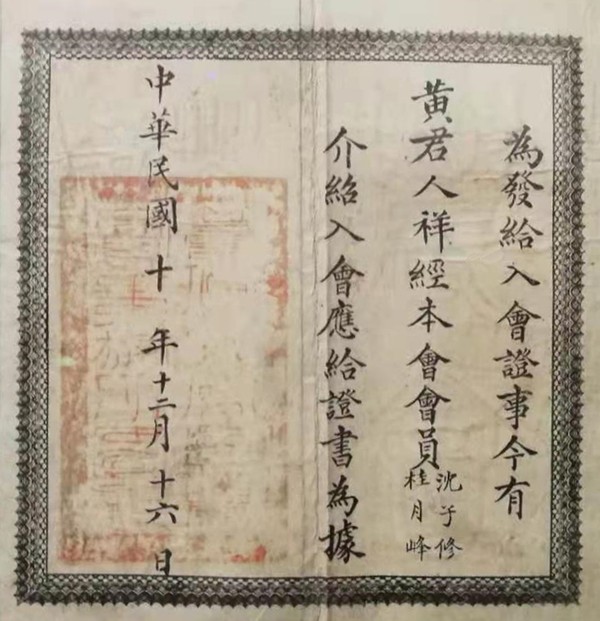 為發給入會證事今有
黃君人祥經本會會員沈子修
桂月峰
介紹入會應給證書為據
中華民國十年十二月十六日